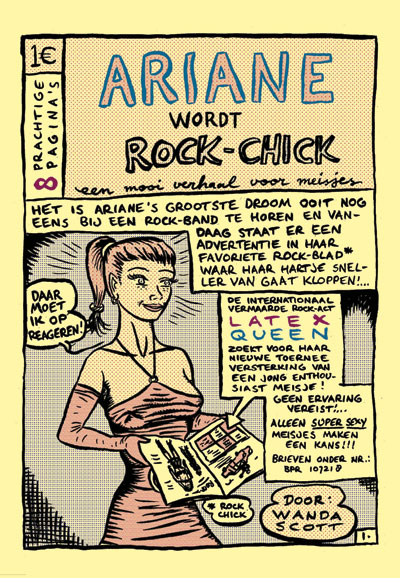 1€
8 PRACHTIGE
PAGINA'S
ARIANE
WORDT
ROCK-CHICK
een mooi verhaal voor meisjes
HET IS ARIANE'S GROOTSTE DROOM OOIT NOG
EENS BIJ EEN ROCK-BAND TE HOREN EN VAN-
DAAG STAAT ER EEN
ADVERTENTIE IN HAAR
FAVORIETE ROCK-BLAD*
WAAR HAAR HARTJE SNEL-
LER VAN GAAT KLOPPEN!...
DAAR
MOET
IK OP
REAGEREN!
DE INTERNATIONAAL
VERMAARDE ROCK-ACT
LATEX
QUEEN
ZOEKT VOOR HAAR
NIEUWE TOERNEE
VERSTERKING VAN
EEN JONG ENTHOU-
SIAST MEISJE!
GEEN ERVARING
VEREIST!...
ALLEEN SUPER SEXY
MEISJES MAKEN
EEN KANS!!!
BRIEVEN ONDER NR.:
BPR 107218
*ROCK
CHICK
DOOR:
WANDA
SCOTT
1.